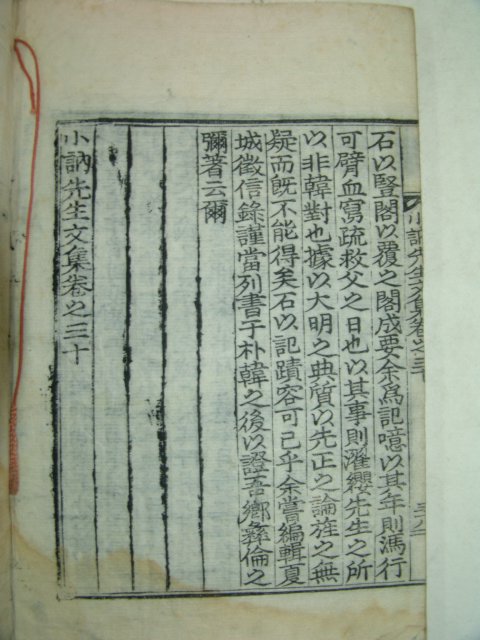 石以竪閣以覆之閣成要余爲記噫以其年則馮行
可臂血寫疏救父之日也以其事則濯纓先生之所
以非韓對也據以大明之典質以先正之論旌之無
疑而旣不能得矣石以記蹟容可已乎余嘗編輯夏
城徵信錄謹當列書于朴韓之後以證吾鄉彝倫之
彌著云爾
小訥先生文集卷之三十
小訥先生文集卷之三十